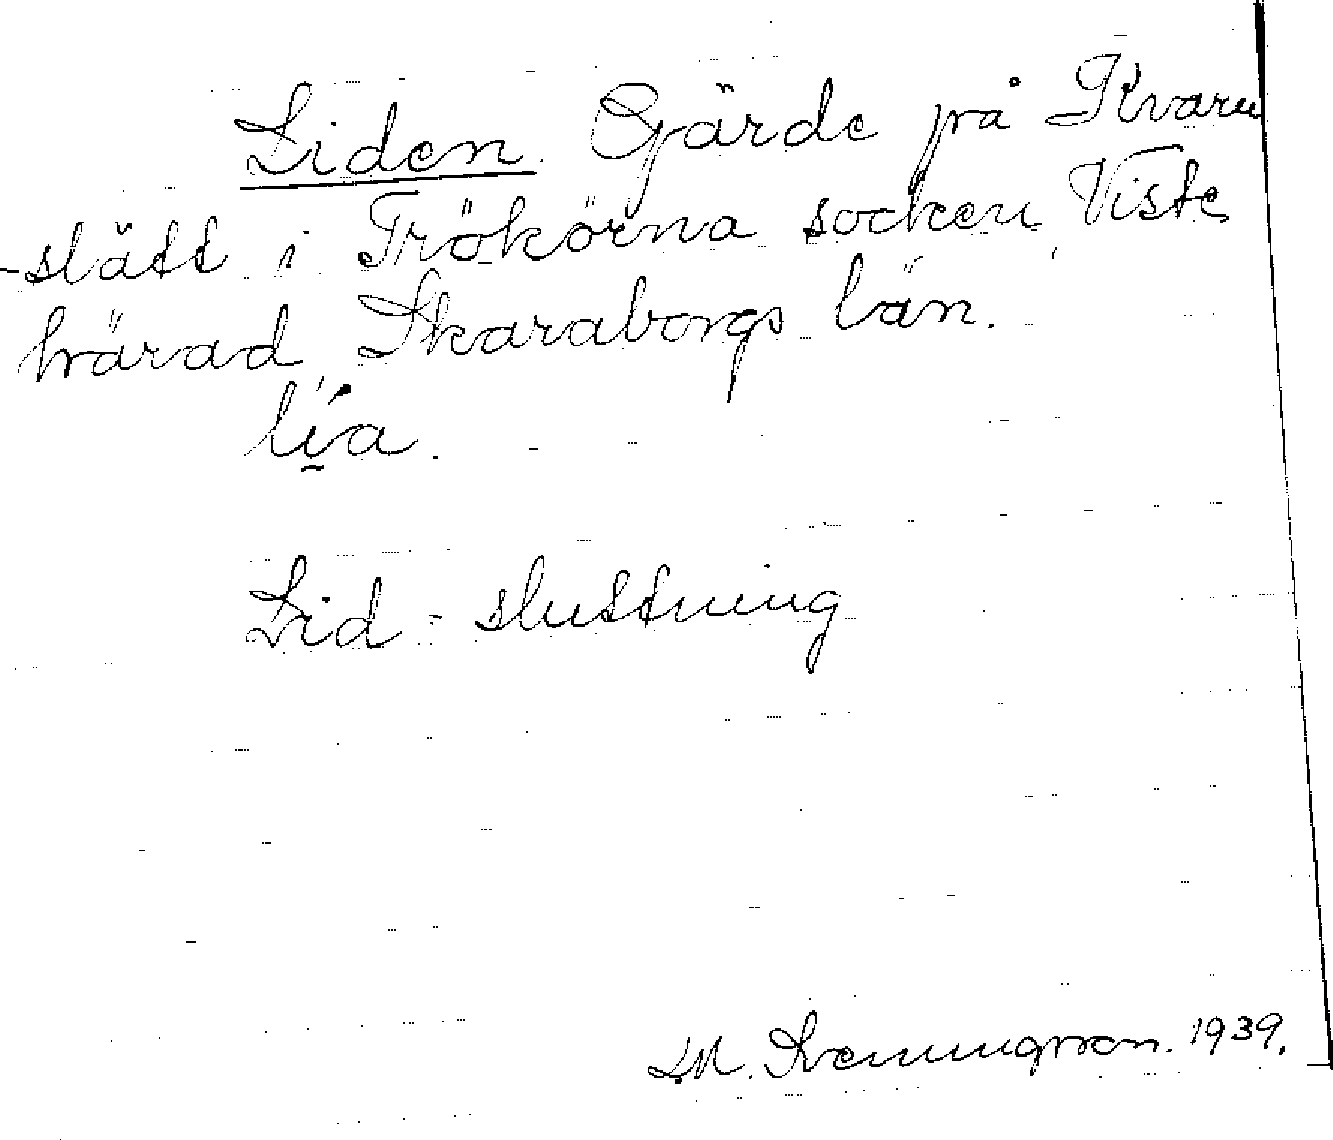 Liden. Gärde på Kvarn
-slätt i Trökörna socken, Viste
härad Skaraborgs län.
lí̯a.
Lid - sluttning
1939.